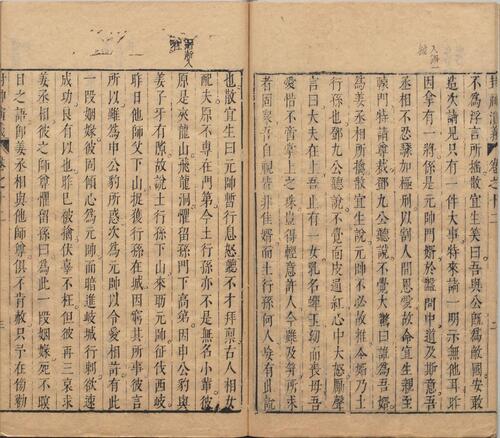 不為浮言所搖散宜生笑曰吾與公既為敵國安敢
造次請見只有一件大事特來請一明示無他耳昨
因拿有一將係是元帥門婿於盤問中道及斯意吾
丞相不忍驟加極刑以割人間恩愛故命宜生親至
轅門特請尊裁鄧九公聽說不覺大驚曰誰為吾婿
為姜丞相所擒散宜生說元帥不必故推令婿乃土
行孫也鄧九公聽說不覺面皮通紅心中大怒厲聲
言曰大夫在上吾止有一女乳名嬋玉幼而喪母吾
愛惜不啻掌上之珠豈得輕意許人今雖及笄所求
者固眾吾自視皆非佳婿而土行孫何人妄有此說
也散宜生曰元帥暫行息怒聽不才拜稟古人相女
配夫原不專在門第今土行孫亦不是無名小輩彼
原是夾龍山飛龍洞懼留孫門下高弟因申公豹與
姜子牙有隙故說土行孫下山來助元帥征伐西岐
昨日他師父下山捉獲行孫在城因窮其所事彼言
所以雖為申公豹所惑次為元帥以令愛相許有此
一段姻緣彼因傾心為元帥而暗進岐城行刺欲速
成功良有以也昨已被擒伏辜不枉但彼再三哀求
姜丞相彼之師尊懼留孫曰為此一段姻緣死不瞑
目之語即姜丞相與他師尊俱不肯赦只予在傍勸